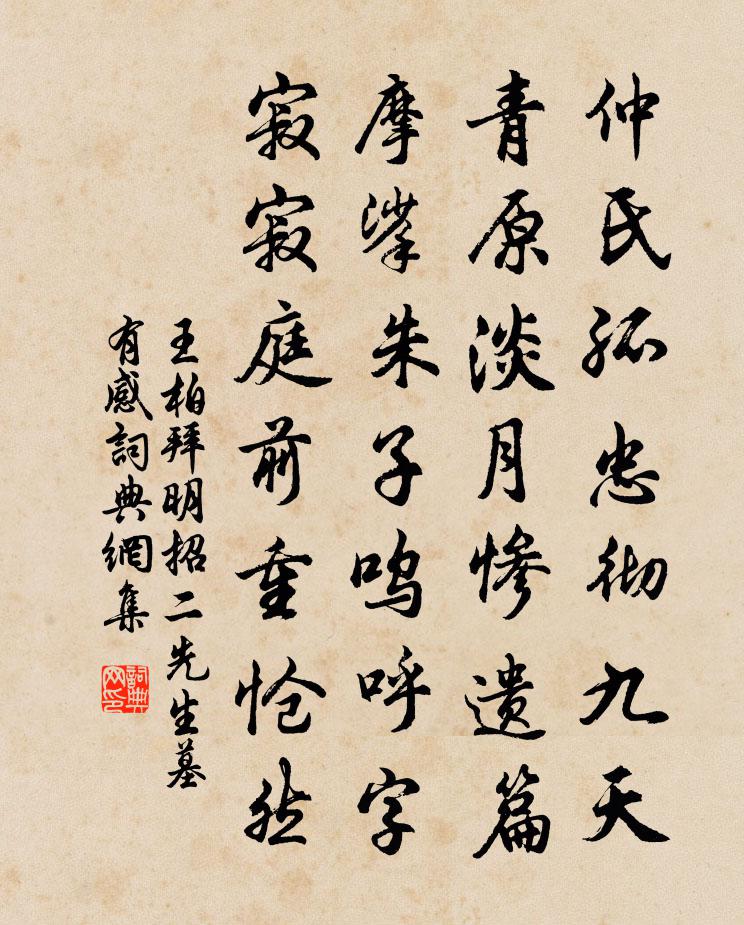 仲氏孤忠彻九天
青原淡月惨遗篇
摩挲朱子呜呼字
寂寂庭前重怆然
王柏拜明招二先生墓
有感詞典網集
詞典网印